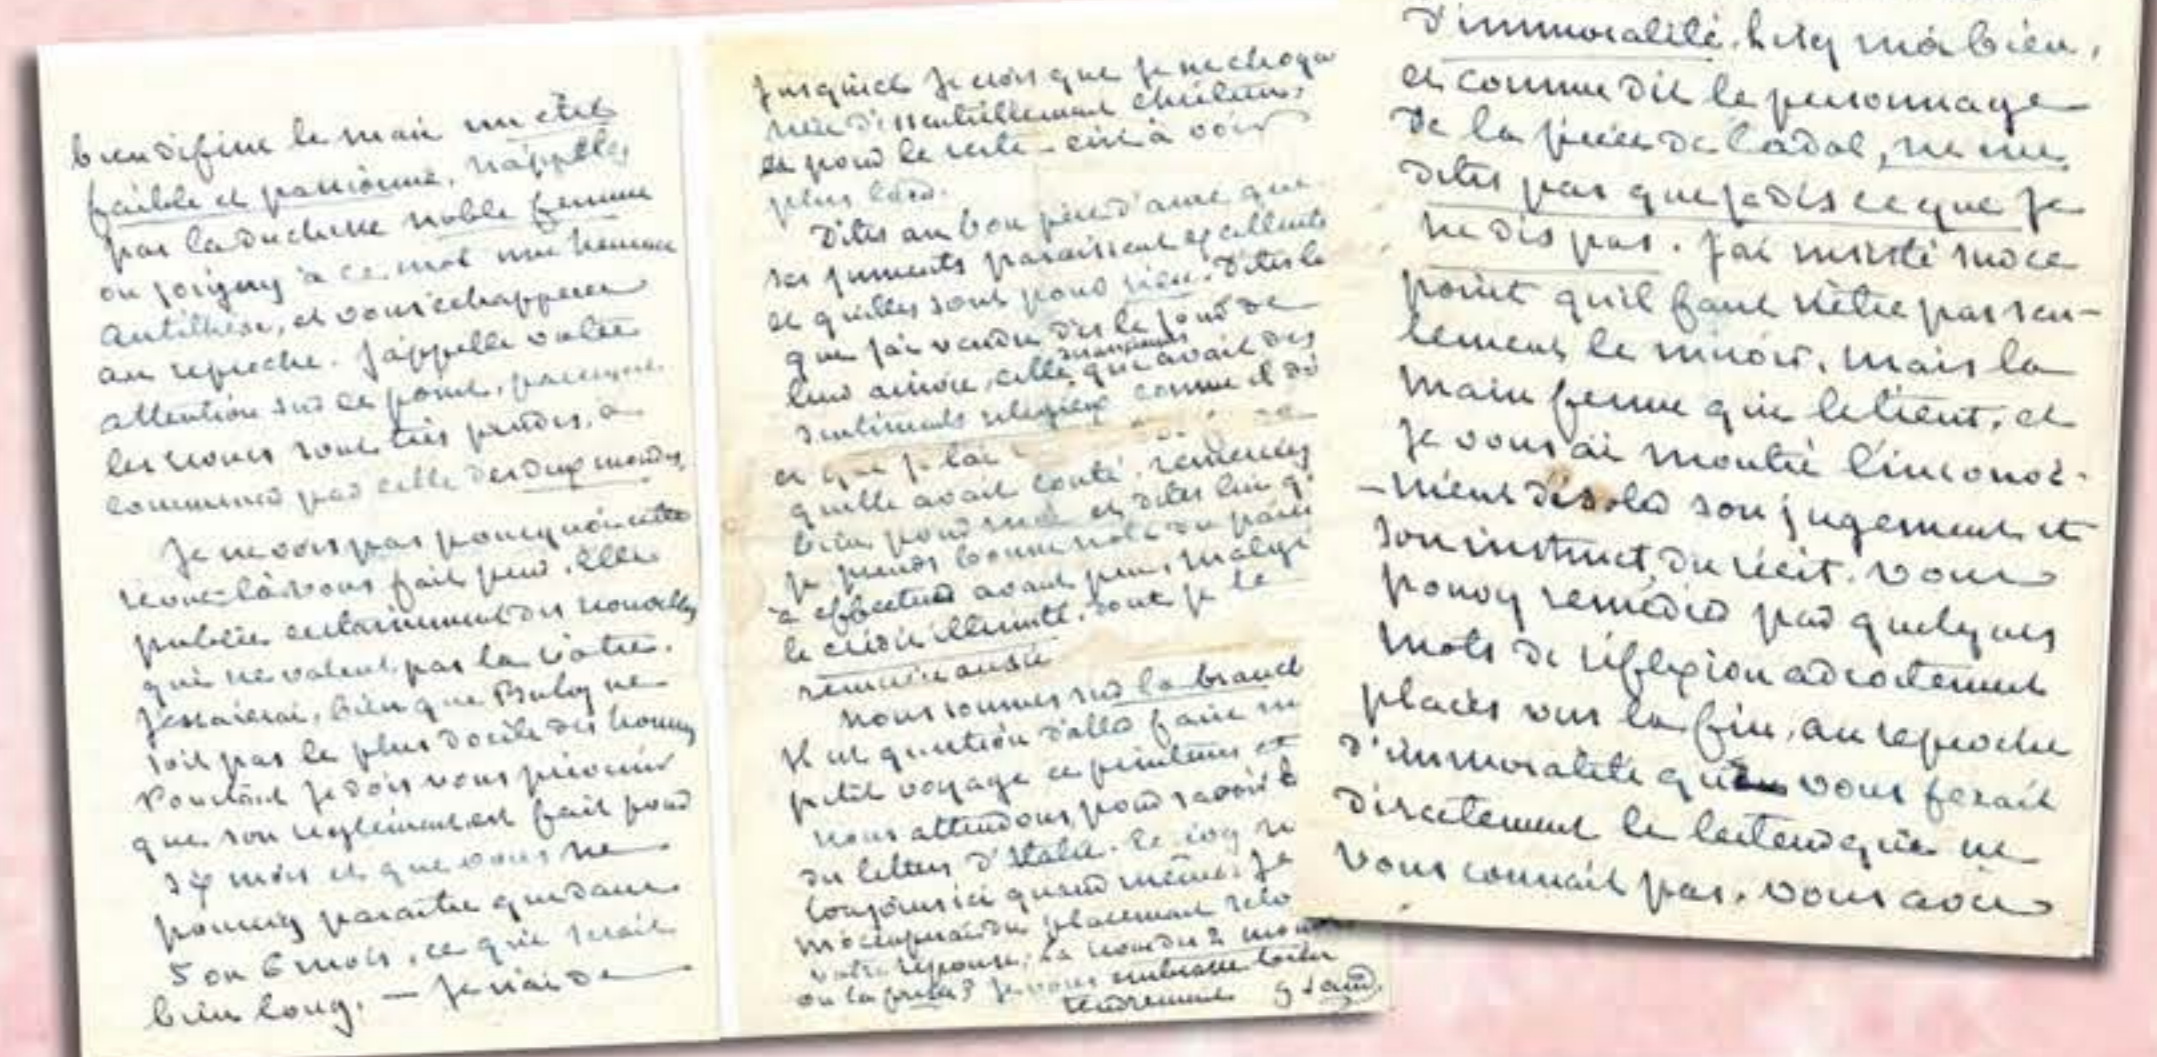 bien défini le mari un être
faible et passionné, n'appelez
par la duchesse noble femme
ou joignez à ce mot une
antithèse, et vous échapperez
au reproche. J'appelle votre
attention sur ce point, parceque
les revues sont très prudes, à
commencer par celle des deux mondes.
Je ne vois pas pourquoi cette
revue-là vous fait peur. Elle
publie certainement des nouvelles
qui ne valent pas la vôtre.
J'essaierai, bien que Buloz ne
soit pas le plus docile des hommes
Pourtant je dois vous prévenir
que son règlement est fait pour
six mois et que vous ne
pourrez paraître que dans
5 ou 6 mois, ce qui serait
bien long. — Je n'ai de
jusqu'ici je crois que je ne
rien d'essentiellement chrétien,
et pour le reste c'est à voir
plus tard.
Dites au bon père d'
ses juments paraissent excellentes
et qu'elles sont pour rien. Dites lui
que j'ai vendu dès le jour de
leur arrivée, celle qui avait des
sentiments religieux comme il dit
et que je l'ai
qu'elle avait coûté. remerciez
bien pour moi et dites lui q
je prends bonne note du
à effectuer avant peu, malgré
le crédit illimité, dont je le
remercie aussi
Nous sommes sur la branche
Il est question d'aller faire un
petit voyage ce printemps et
nous attendons pour savoir
des lettres d'Italie. Écrivez
toujours ici quand même. Je
m'occuperai du placement
votre réponse. La revue des 2 mondes
ou la presse? Je vous embrasse
tendrement G Sand
d'immoralité. Lisez moi bien,
et comme dit le personnage
de la pièce de Cadol, ne me
dites pas que je dis ce que je
ne dis pas. J'ai insisté sur ce
point qu'il faut n'être pas seu-
lement le miroir, mais la
main ferme qui le tient, et
je vous ai montré l'inconvé-
-nient d'isoler son jugement et
son instinct, du récit. Vous
pouvez remédier par quelques
mots de réflexion adroitement
placés vers la fin, au reproche
d'immoralité que vous ferait
directement le lecteur qui ne
vous connait pas. Vous avez